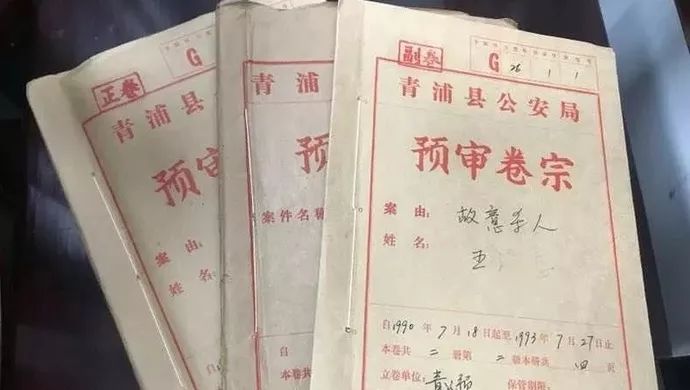 正卷
G
青浦县
预审
案由:
姓名:
G
青浦
预
案件名称
自
本卷共
立卷单位:
副卷
G 26 1 1
青浦县公安局
预审卷宗
案由: 故意杀人
姓名: 王
自1990年7月18日起至1993年7月27日止
本卷共二册第二册本册共 页
立卷单位: 青 预 保管期限: